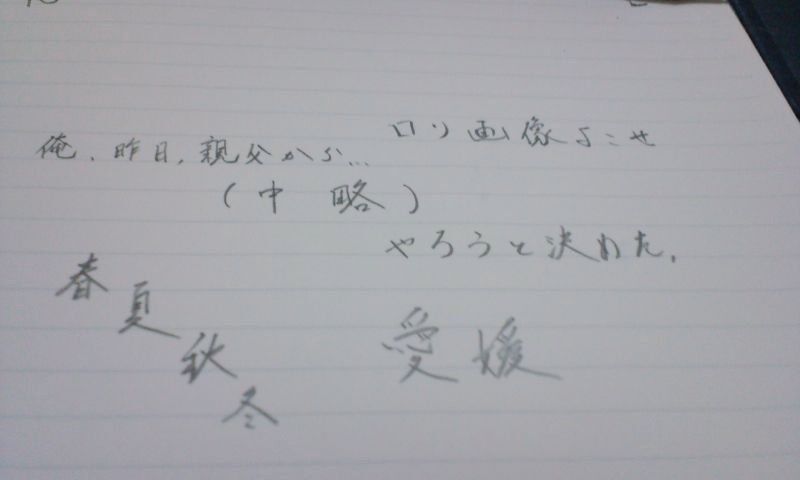 俺、昨日、親父から…
ロリ画像よこせ
(中略)
やろうと決めた。
春夏秋冬
愛媛